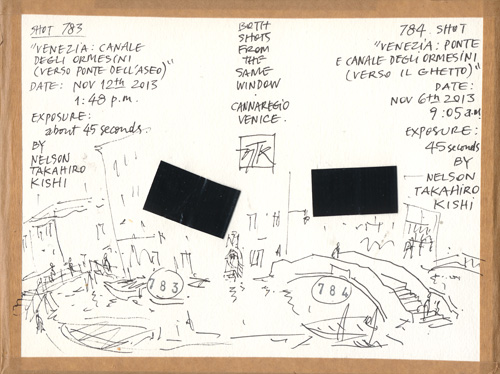 SHOT 783
"VENEZIA: CANALE
DEGLI ORMESINI
(VERSO PONTE DELL'ASEO)"
DATE: NOV 12th 2013
1:48 p.m.
EXPOSURE:
about 45 seconds.
BY
NELSON
TAKAHIRO
KISHI
BOTH
SHOTS
FROM
THE
SAME
WINDOW.
CANNAREGIO
VENICE.
784 SHOT
"VENEZIA: PONTE
E CANALE DEGLI ORMESINI
(VERSO IL GHETTO)"
DATE:
NOV 6th 2013
9:05 a.m
EXPOSURE:
45 seconds
BY
NELSON
TAKAHIRO
KISHI
783
784